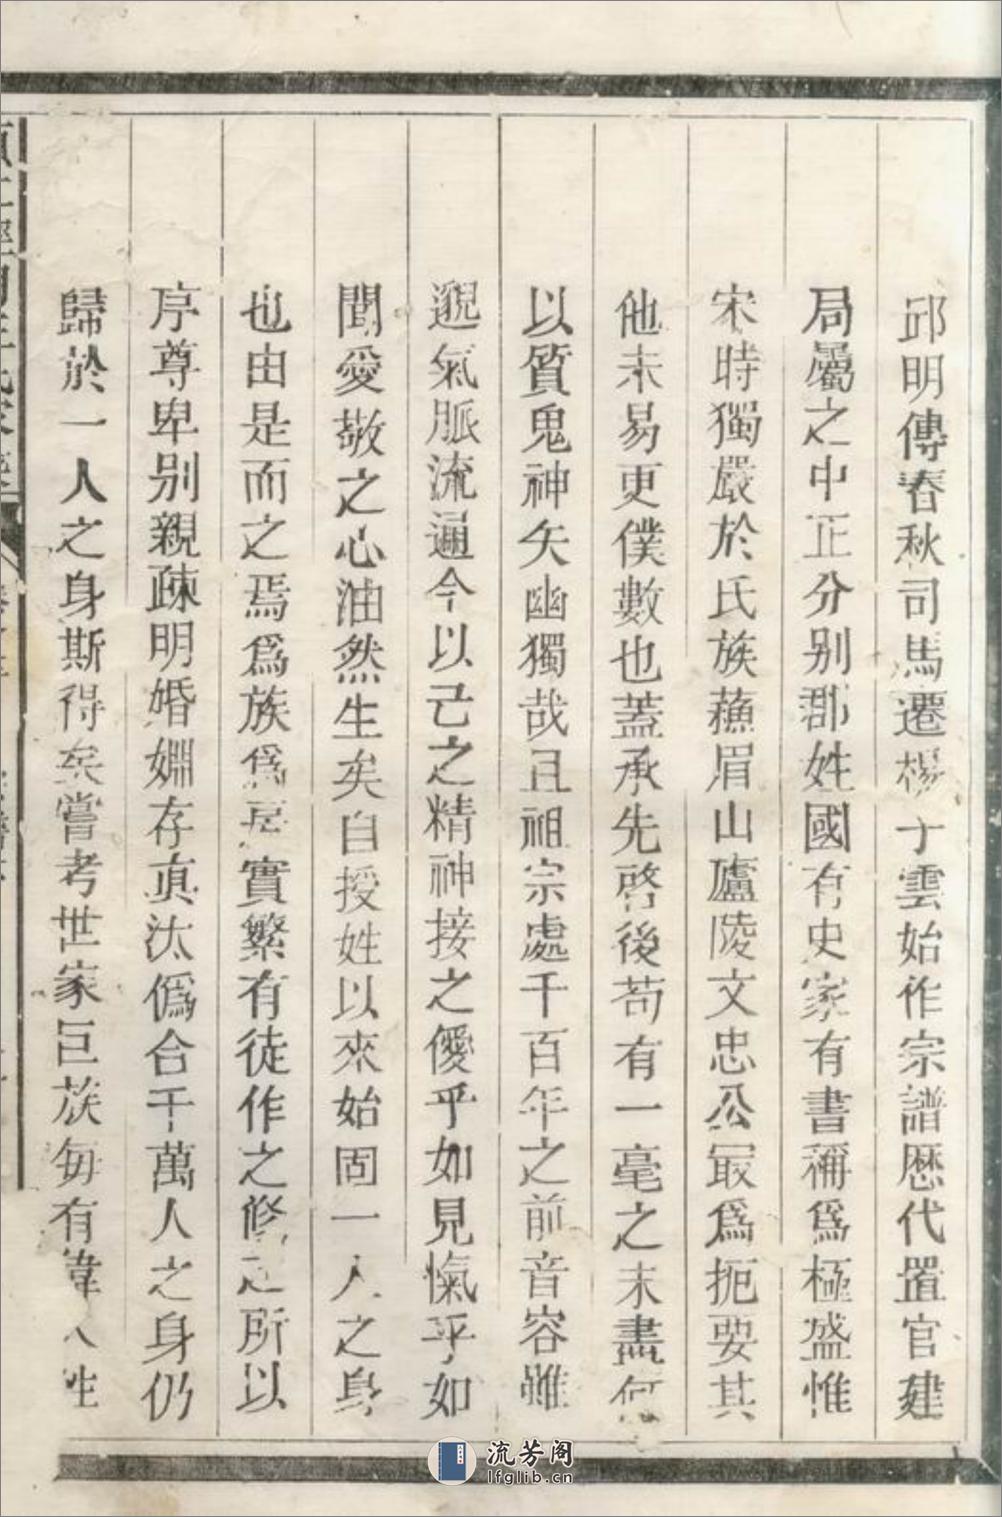 邱明傳春秋司馬遷楊子雲始作宗譜歷代置官建
局屬之中正分别郡姓國有史家有書稱爲極盛惟
宋時獨嚴於氏族蘓眉山廬陵文忠公最爲扼要其
他未易更僕數也蓋承先啓後苟有一毫之未盡何
以質鬼神矢幽獨哉且祖宗處千百年之前音容雖
邈氣脈流通今以己之精神接之僾乎如見愾乎如
聞愛敬之心油然生矣自授姓以來始固一人之身
也由是而之焉爲族爲房實繁有徒作之修之所以
序尊卑别親疎明婚姻存真汰僞合千萬人之身仍
歸於一人之身斯得矣嘗考世家巨族每有偉人性
流芳阁
lfglib.cn